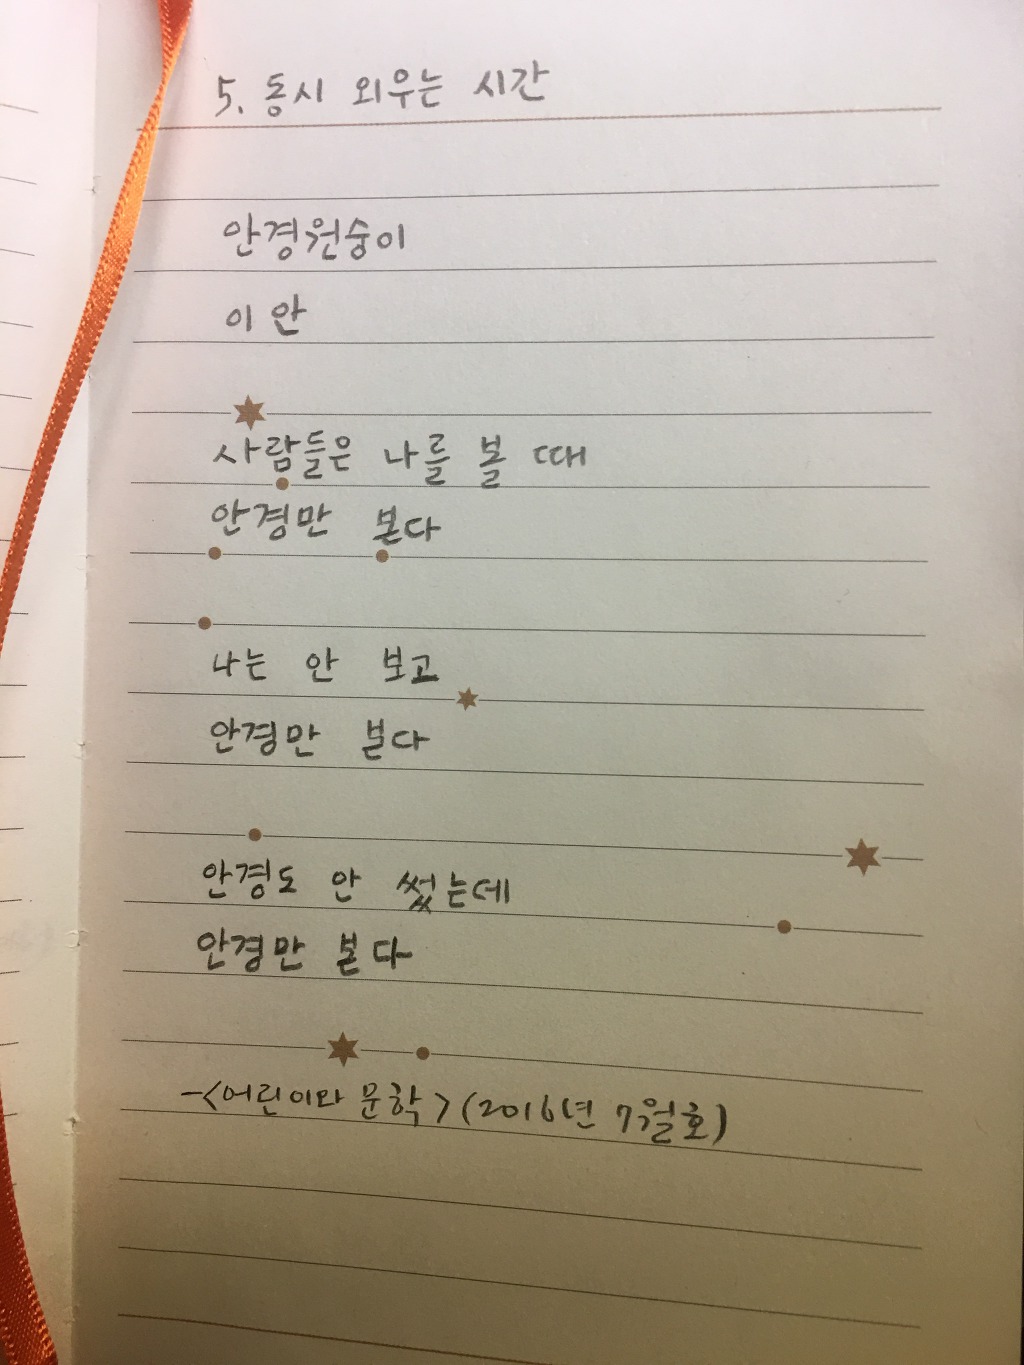 5. 동시 외우는 시간
안경원숭이
이 안
사람들은 나를 볼 때
안경만 본다
나는 안 보고
안경만 본다
안경도 안 썼는데
안경만 본다
-<어린이와 문학>(2016년 7월호)